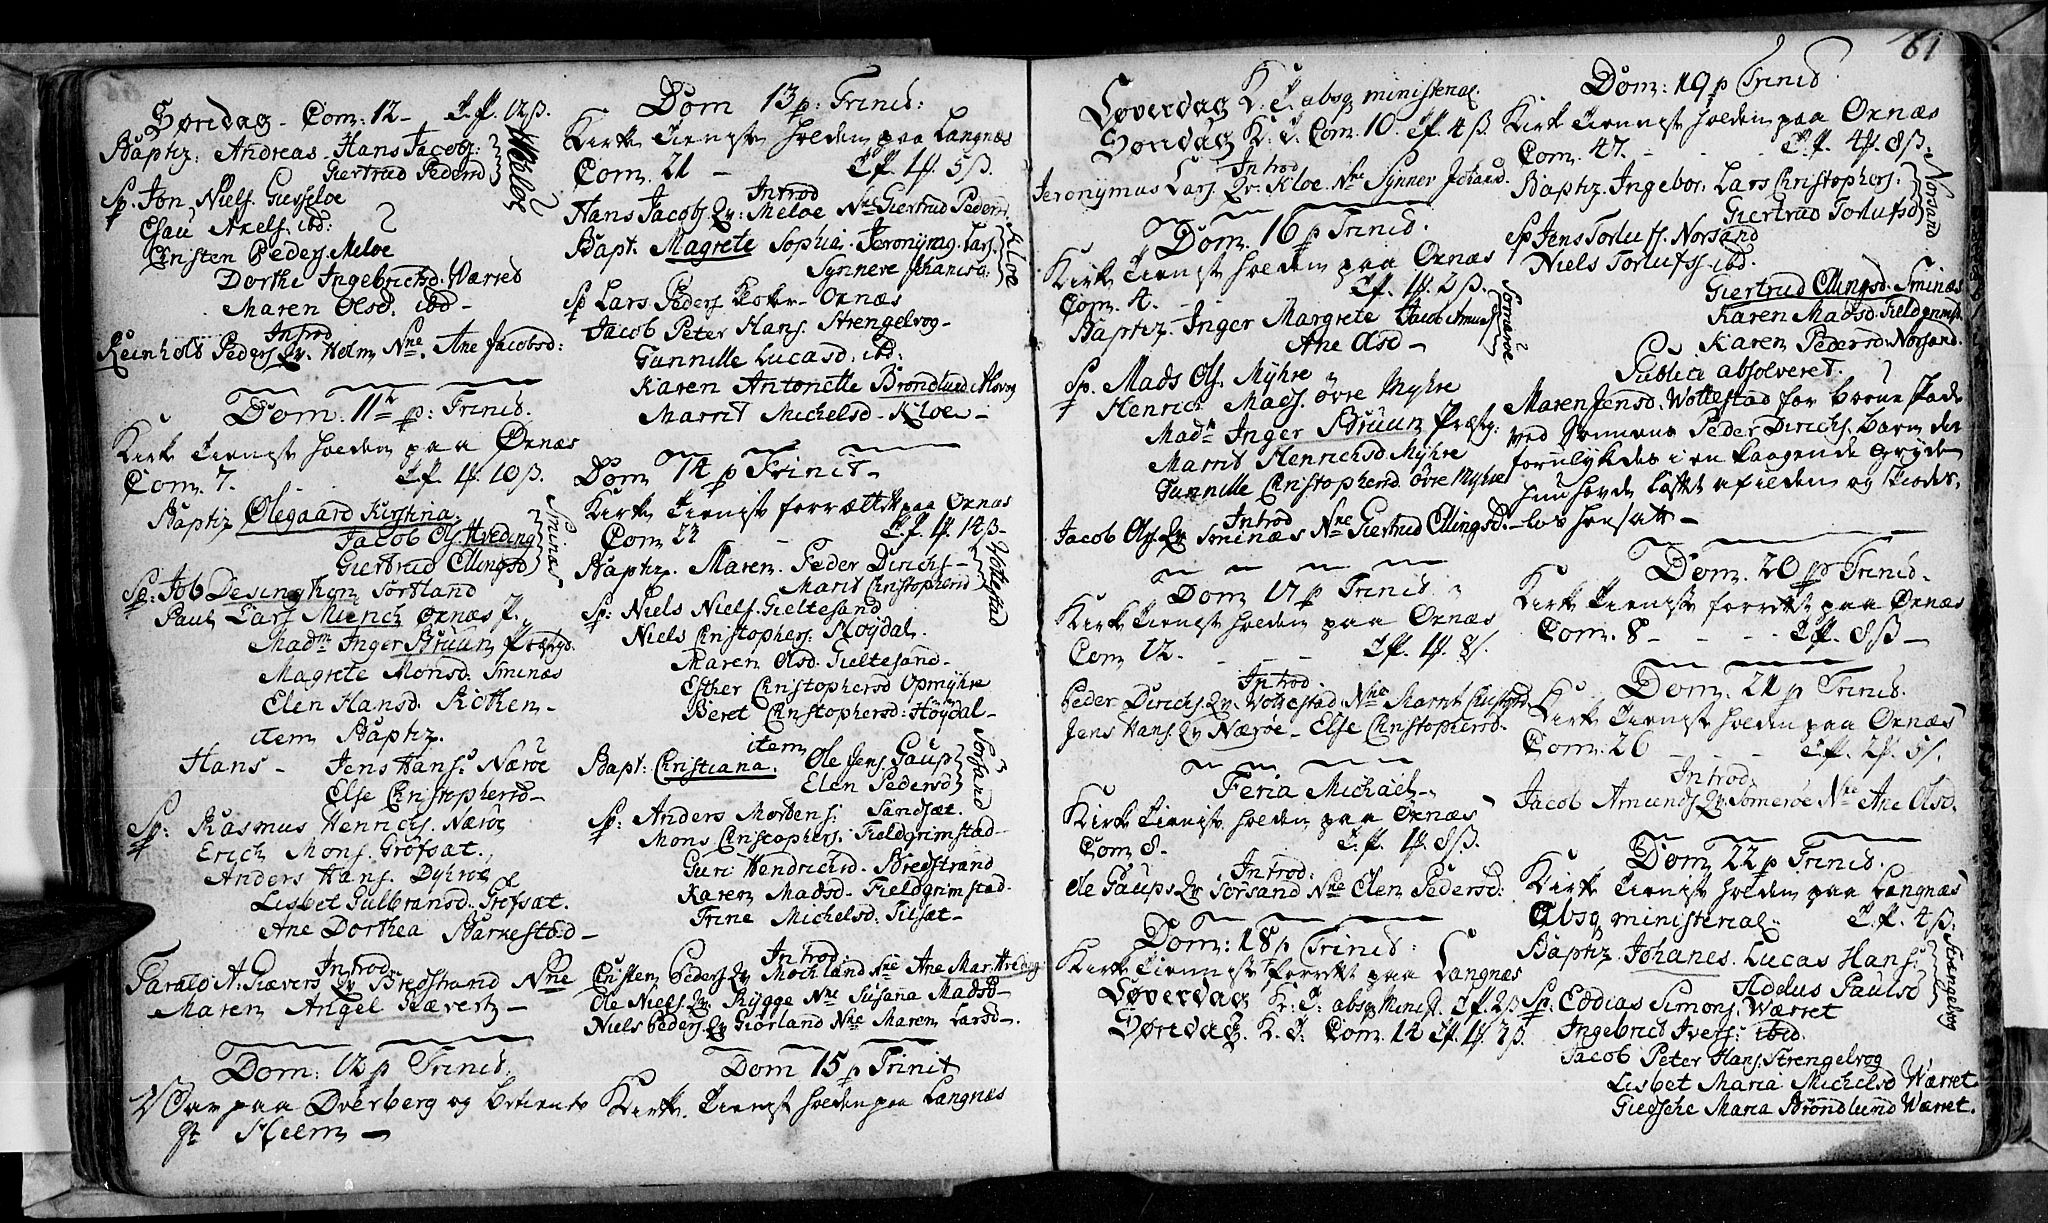 Söndag - Com: 12 - T.f. 12ß.
Baptiz: Andreas. Hans Jacobs:
Giertrud Pedersd
Meloe
Sp. Jon Niels. Giesseloe
Esau Axels. ibd:
Cristen Peders. Meloe
Dorthe Ingebrichtsd. Wærred
Maren Olsd. ibd -
Introd
Reinholt Peders Qv. Holm Nne. Ane Jacobsd:
Dom. 11te p: Trinid.
Kirke Tieneste holden paa Ørnæs
Com. 7. Tf. 1f. 10ß.
Baptiz Olegaard Kirstina.
Jacob Ols. Hveding
Giertrud Ellingsd
Sminæs
Sp: Job Desington Sortland
Paul Lars Ørnæs
Madm Inger Bruun
Magrete Monsd: Sminæs
Elen Hansd.
item Baptiz.
Hans - Jens Hans. Næroe
Else Christophersd -
Sp: Rasmus Henrichs. Næroe
Erich Mons. Grofsæt.
Anders Hans. Dyhroe
Lisbet Gulbransd. Grofsæt.
Ane Dorthea Barkestad -
Introd
Tarald A. Siævers Qv Bredstrand Nne
Maren Angel Siævertz -
Dom: 12 p Trinid.
War paa Dverberg og betiente
Hr Steen -
Dom 13 p: Trinid:
Kirke Tieneste holden paa Langnæs
Com. 21 - T.f. 1f. 5ß.
Introd
Hans Jacobs Qv: Meloe Nne Giertrud Pedersd
Bapt. Magrete Sophia. Jeronymg. Lars.
Synneve Johansd.
Kloe
Sp Lars Peders - Ornæs
Jacob Peter Hans. Strengelvog -
Gunnille Lucasd. ibd:
Karen Antonette Brøndlund
Marrit Michelsd - Kloe -
Dom 14 p Trinit -
Kirke Tieneste forrættet paa Ørnæs
Com 22 - T.f. 1f. 14ß.
Baptiz. Maren. Peder Dirichs -
Marit Christophersd
Wottestad
Sp: Niels Niels. Gieltesand
Niels Christophers. Høydal.
Maren Olsd. Gieltesand -
Esther Christophersd Opmyhre
Beret Christophersd: Høydal -
item
Bapt: Christiana. Ole Jens. Gaup
Elen Pedersd
Sorsand
Sp: Anders Mortens: Sandsæt.
Mons Christophers. Fieldgrimstad -
Guri Hendrichsd. Bredstrand
Karen Madsd. Fieldgrimstad.
Trine Michelsd: Tilsæt -
Introd:
Cristen Peders Qv Mochland Nne Ane Mar: Hveding
Ole Niels. Qv Rygge Nne Susana Madsd -
Niels Peders. Qv Giørland Nne Maren Larsd -.
Dom 15 p Trinit
Kirke. Tieneste holden paa Langnæs
61
Løverdag K. T. absq ministerial.
Søndag K. T. Com. 10. Tf. 4ß.
Introd
Jeronymus Lars. Qv. Kloe. Nne Synnev Johansd.
Dom. 16 p Trinid.
Kirke Tieneste holden paa Ørnæs
Com. 4. - Tf. 1f. 2ß.
Baptiz. Inger Margrete Jacob Amunds
Ane Olsd -
Someroe
Sp. Mads Ols. Myhre
Henrich Mads. øvre Myhre
Madm Inger Bruun Præstg:
Marrit Henrichsd Myhre
Gunnille Christophersd øvre Myhre
Introd
Jacob Ols. Qv Sminæs Nne Giertrud Ellingsd. -
Dom. 17 p Trinid.
Kirke Tieneste holden paa Ørnæs
Com 12. - - Tf. 1f. 8ß.
Introd.
Peder Dirichs Qv. Wottestad. Nne Marrit Christophersd
Jens Hans. Qv Næroe - Else Christophersd.
Feria Michael -
Kirke Tieneste holden paa Ørnæs
Com 8. T.f. 1f. 8ß.
Introd:
Ole Gaups Qv Sorsand Nne Elen Pedersd:
Dom: 18 p Trinid:
Kirke Tieneste forrettet paa Langnæs
Løverdag K. T. absq Minist. Tf. 2ß
Søndag. K. T. Com. 14 Tf. 1f. 3ß.
Dom: 19 p Trinid
Kirke Tieneste holden paa Ørnæs
Com. 47. - - - T.f. 4f. 8ß.
Baptiz. Ingebor. Lars Christophers.
Giertrud Torlufsd
Norsand
Sp Jens Torlufs. Norsand
Niels Torlufs. ibd.
Giertrud Ellingsd. Sminæs
Karen Madsd. Fieldgrimst.
Karen Pedersd: Norsand.
Publicè absolveret.
Maren Jensd. Wottestad for
ved Peder Dirichs. barn der
forulykkedes i en kaagende gryde
hun hafde løftet af ilden og skiødes-
løs hensatt -
Dom. 20 p Trinid.
Kirke Tieneste forrettet paa Ørnæs
Com. 8 - - - Tf. 8ß -
Dom. 21 p Trinid.
Kirke Tieneste holden paa Ørnæs
Com. 26 - - Tf. 2f. 5ß.
Introd.
Jacob Amunds Qv. Someroe Nne Ane Olsd.
Dom 22 p Trinid.
Kirke Tieneste holden paa Langnæs
Absq ministerial. T.f. 4ß.
Baptiz Johanes. Lucas Hans.
Aldus Paulsd
Strengelvog
Sp. Eddias Simons. Wærret
Ingebrict Ivers: ibid.
Jacob Peter Hans. Strengelvog
Lisbet Maria Michelsd Wærret.
Giedsche Maria Brøndlund Wærret.